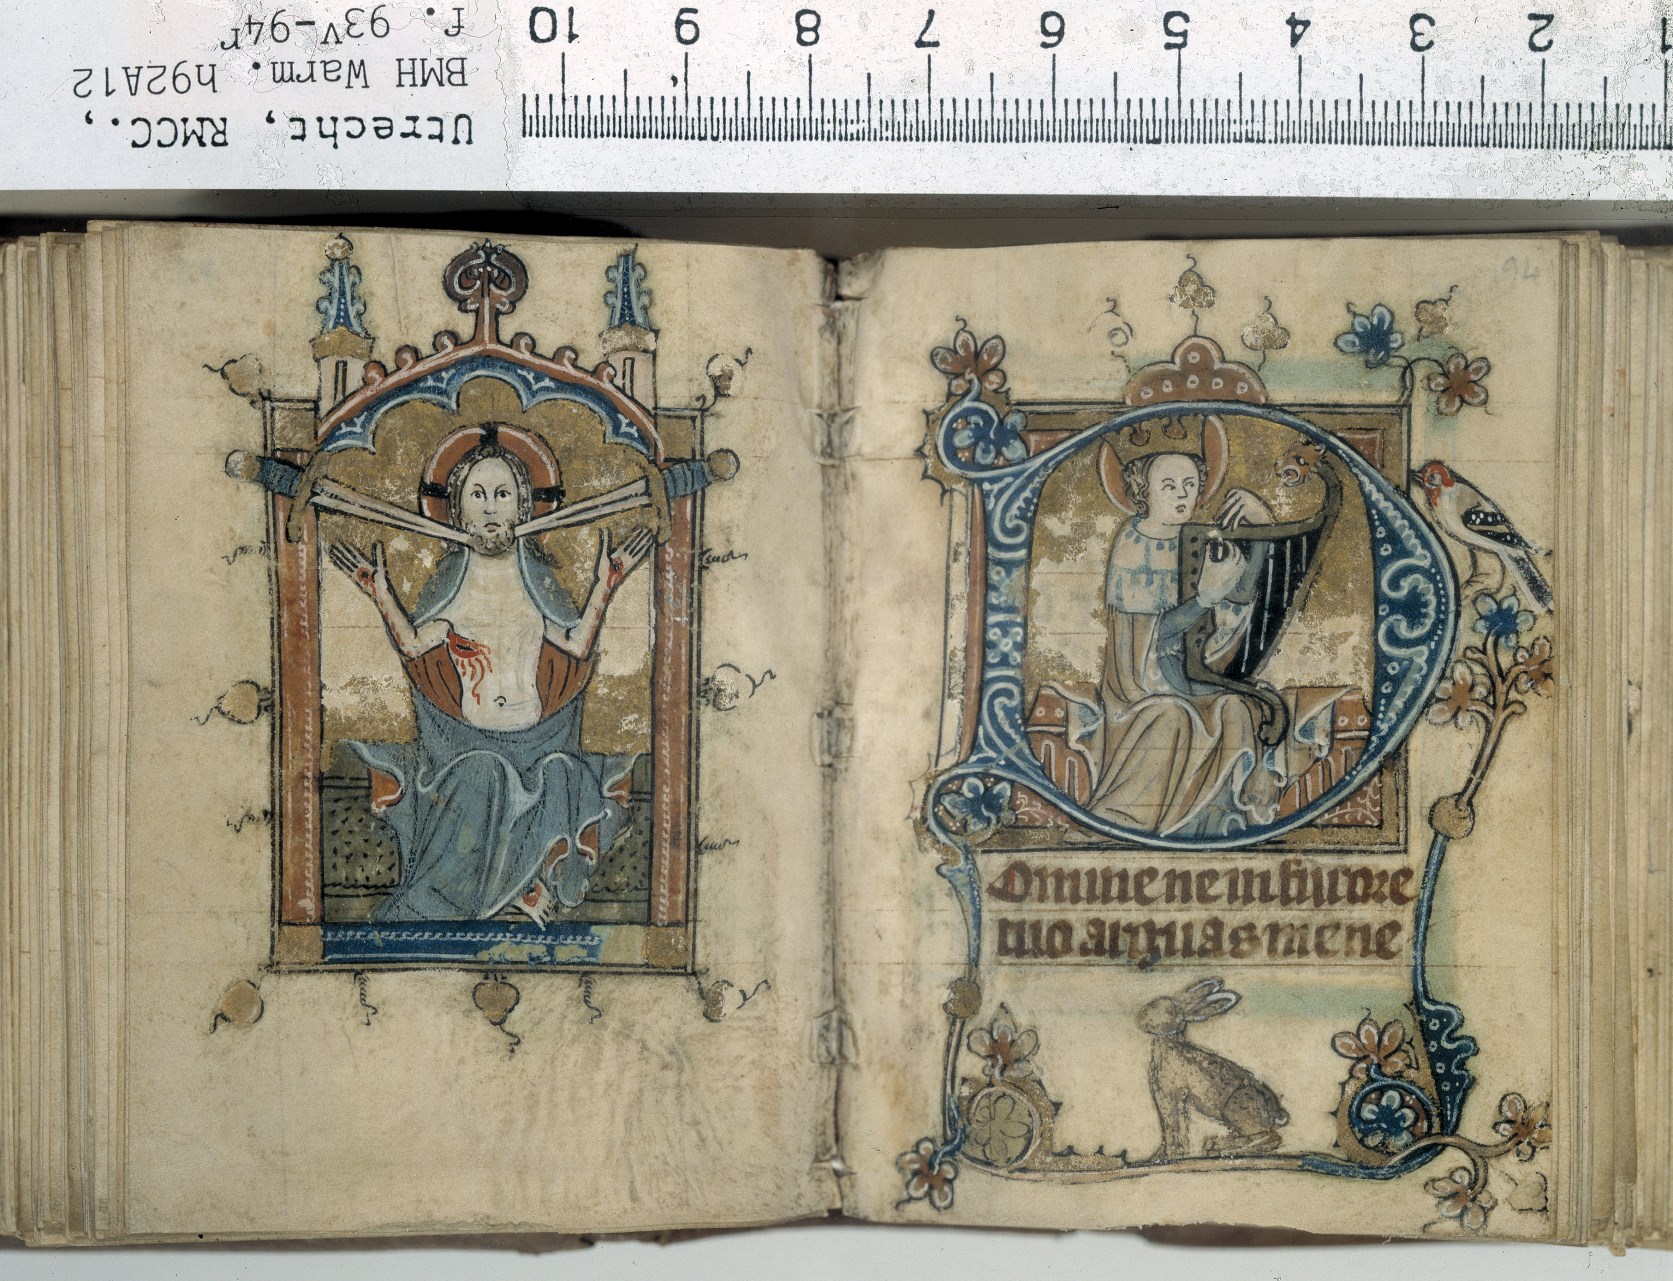 Utrecht, RMCC.,
BMH Warm. h92A12
f. 93v-94r
10 9 8 7 6 5 4 3 2 1
94
Domine ne in furore
tuo arguas me ne